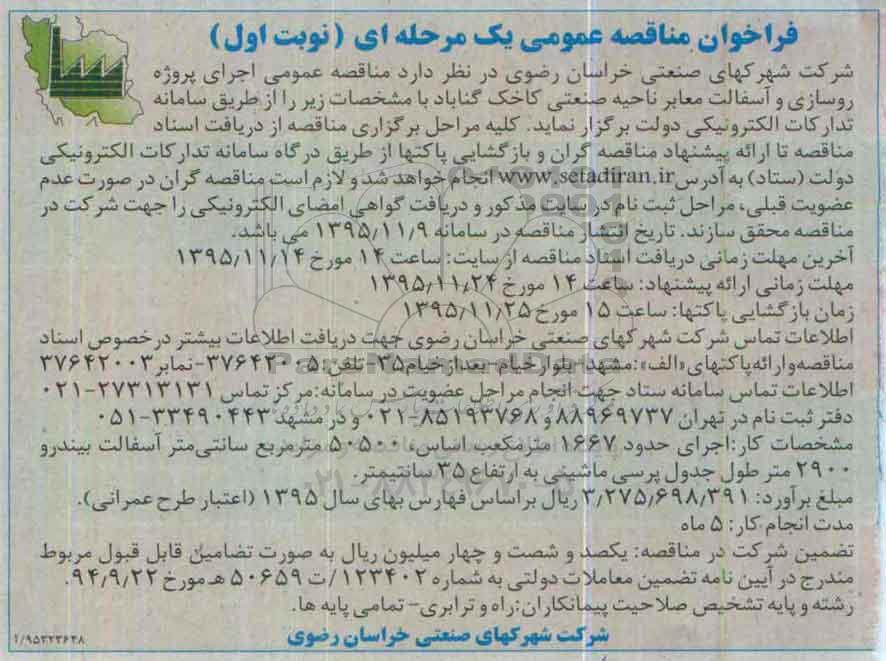 فراخوان مناقصه عمومی یک مرحله ای (نوبت اول)
شرکت شهرکهای صنعتی خراسان رضوی در نظر دارد مناقصه عمومی اجرای پروژه
روسازی و آسفالت معابر ناحیه صنعتی کاخک گناباد با مشخصات زیر را از طریق سامانه
تدارکات الکترونیکی دولت برگزار نماید. کلیه مراحل برگزاری مناقصه از دریافت اسناد
مناقصه تا ارائه پیشنهاد مناقصه گران و بازگشایی پاکتها از طریق درگاه سامانه تدارکات الکترونیکی
دولت (ستاد) به آدرس www.setadiran.ir انجام خواهد شد و لازم است مناقصه گران در صورت عدم
عضویت قبلی، مراحل ثبت نام در سایت مذکور و دریافت گواهی امضای الکترونیکی را جهت شرکت در
مناقصه محقق سازند. تاریخ انتشار مناقصه در سامانه ۱۳۹۵٫۱۱٫۹ می باشد.
آخرین مهلت زمانی دریافت اسناد مناقصه از سایت: ساعت ۱۴ مورخ ۱۳۹۵٫۱۱٫۱۴
مهلت زمانی ارائه پیشنهاد: ساعت ۱۴ مورخ ۱۳۹۵٫۱۱٫۲۴
زمان بازگشایی پاکتها: ساعت ۱۵ مورخ ۱۳۹۵٫۱۱٫۲۵
اطلاعات تماس شرکت شهرکهای صنعتی خراسان رضوی جهت دریافت اطلاعات بیشتر درخصوص اسناد
مناقصه وارائه پاکتهای «الف»: مشهد- بلوار خیام- بعد از خیام ۳۵- تلفن: ۵-۳۷۶۴۲۰۰ -نمابر ۳۷۶۴۲۰۰۳
اطلاعات تماس سامانه ستاد جهت انجام مراحل عضویت در سامانه: مرکز تماس ۲۷۳۱۳۱۳۱-۰۲۱
دفتر ثبت نام در تهران ۸۸۹۶۹۷۳۷ و ۸۵۱۹۳۷۶۸-۰۲۱ و در مشهد ۳۳۴۹۰۴۴۳-۰۵۱
مشخصات کار: اجرای حدود ۱۶۶۷ مترمکعب اساس، ۵۰۵۰۰ مترمربع سانتی‌متر آسفالت بیندرو
۲۹۰۰ متر طول جدول پرسی ماشینی به ارتفاع ۳۵ سانتیمتر.
مبلغ برآورد: ۳٫۲۷۵٫۶۹۸٫۳۹۱ ریال براساس فهارس بهای سال ۱۳۹۵ (اعتبار طرح عمرانی).
مدت انجام کار: ۵ ماه
تضمین شرکت در مناقصه: یکصد و شصت و چهار میلیون ریال به صورت تضامین قابل قبول مربوط
مندرج در آیین نامه تضمین معاملات دولتی به شماره ۱۲۳۴۰۲/ت ۵۰۶۵۹ هـ مورخ ۹۴٫۹٫۲۲.
رشته و پایه تشخیص صلاحیت پیمانکاران: راه و ترابری- تمامی پایه ها.
شرکت شهرکهای صنعتی خراسان رضوی